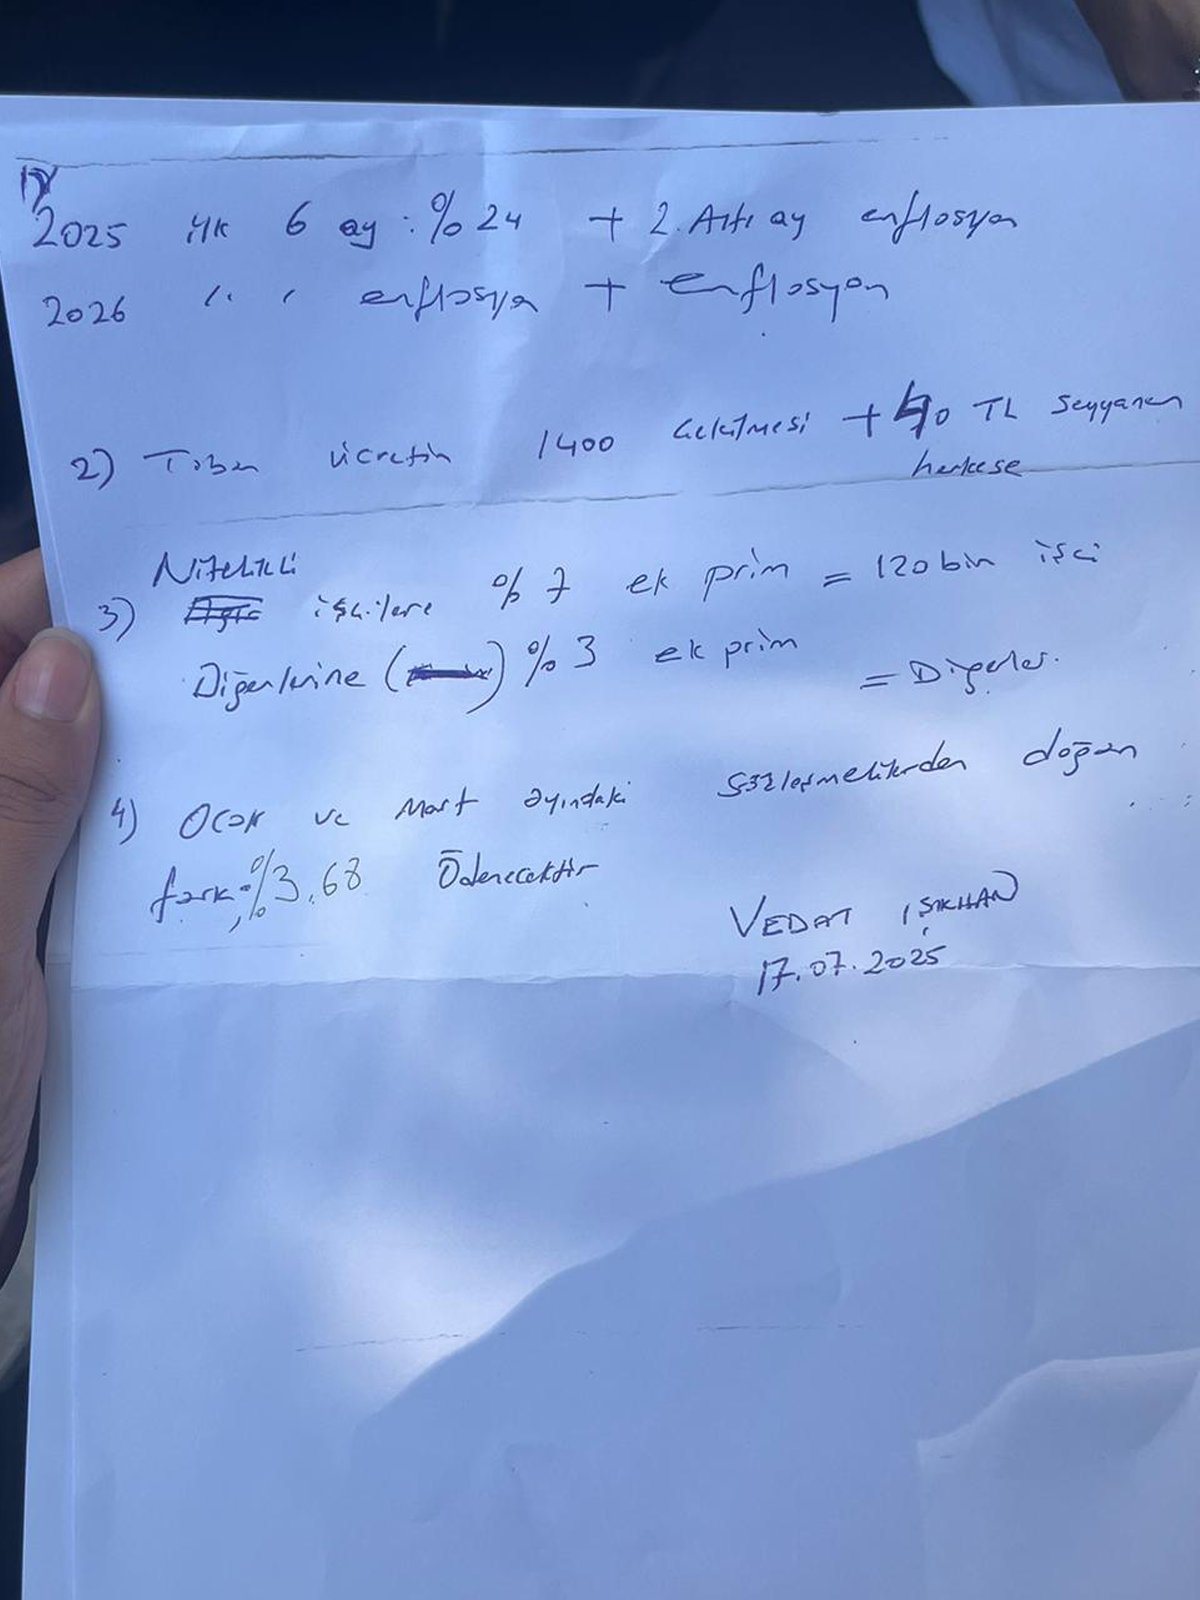 1)
2025 ilk 6 ay : %24 + 2. Altı ay enflasyon
2026 " " enflasyon + enflasyon
2) Taban ücretin 1400 çekilmesi + 40 TL seyyanen
herkese
Nitelikli
3) işçilere %7 ek prim = 120 bin işçi
Diğerlerine ( ) %3 ek prim
= Diğerler.
4) Ocak ve Mart ayındaki sözleşmelilerden doğan
fark %3,68 Ödenecektir
VEDAT IŞIKHAN
17.07.2025